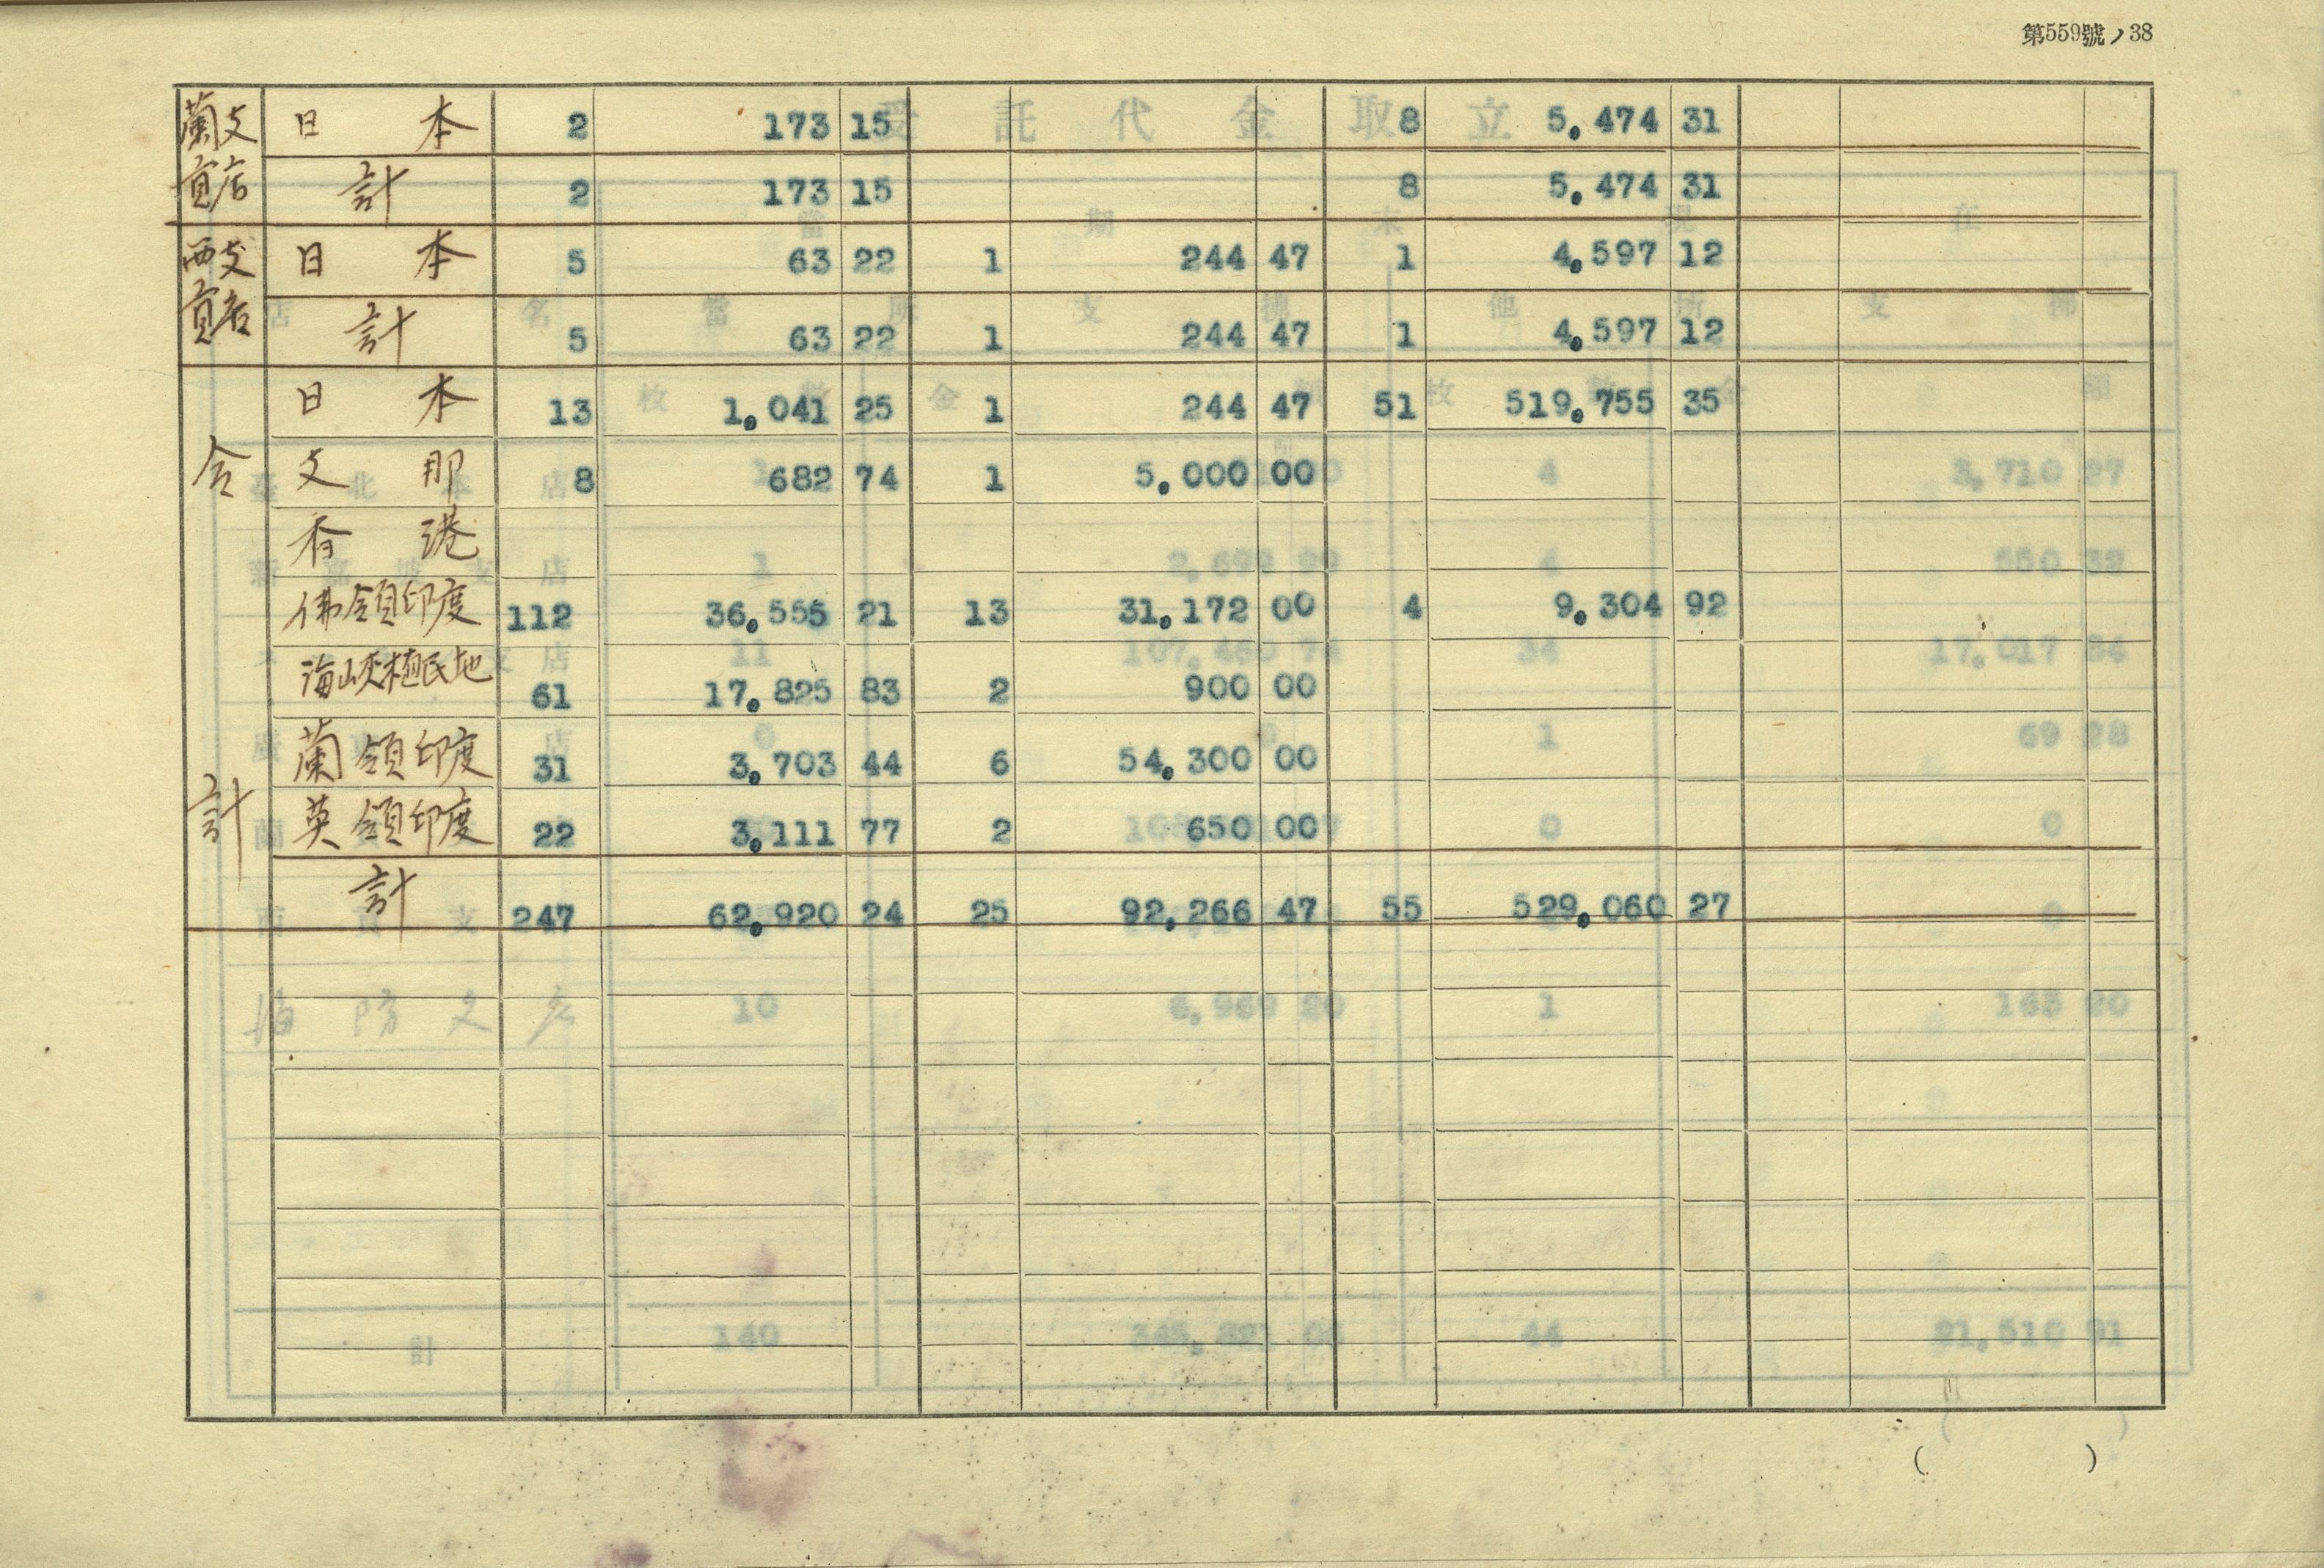 第559號ノ38
蘭貢支店 日本 2 173 15 8 5,474 31
計 2 173 15 8 5,474 31
西貢支店 日本 5 63 22 1 244 47 1 4,597 12
計 5 63 22 1 244 47 1 4,597 12
合計 日本 13 1,041 25 1 244 47 51 519,755 35
支那 8 682 74 1 5,000 00
香港
佛領印度 112 36,555 21 13 31,172 00 4 9,304 92
海峽植民地 61 17,825 83 2 900 00
蘭領印度 31 3,703 44 6 54,300 00
英領印度 22 3,111 77 2 650 00
計 247 62,920 24 25 92,266 47 55 529,060 27
( )